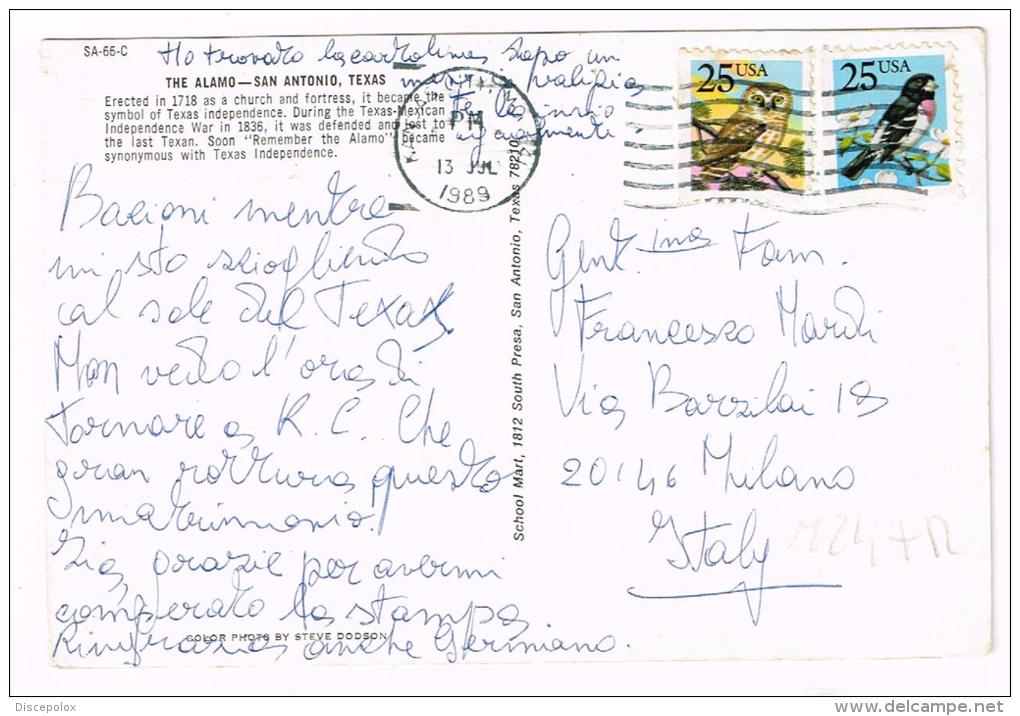 SA-66-C
Ho trovato la cartolina dopo un
mese in valigia
Te la invio
ugualmente.
THE ALAMO—SAN ANTONIO, TEXAS
Erected in 1718 as a church and fortress, it became the
symbol of Texas independence. During the Texas-Mexican
Independence War in 1836, it was defended and lost to
the last Texan. Soon "Remember the Alamo" became
synonymous with Texas Independence.
PM
13 JUL
1989
25 USA
25 USA
Bacioni mentre
mi sto sciogliendo
al sole del Texas
Non vedo l'ora di
tornare a K.C. Che
gran rottura questo
matrimonio!
Zia, grazie per avermi
comperato la stampa
Ringrazia anche Germano.
COLOR PHOTO BY STEVE DODSON
School Mart, 1812 South Presa, San Antonio, Texas 78210
Gent.ma Fam.
Francesco Mardi
Via Barzilai 18
20146 Milano
Italy
Discepolox
delcampe.net